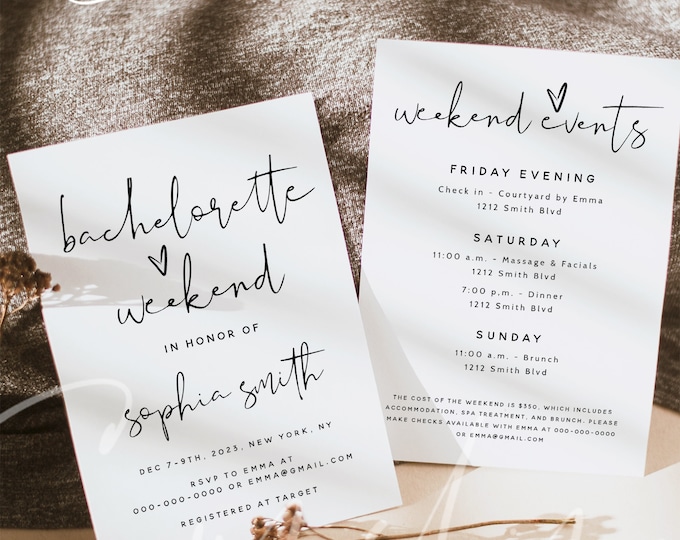 bachelorette
weekend
IN HONOR OF
sophia smith
DEC 7-9TH, 2023, NEW YORK, NY
RSVP TO EMMA AT
000-000-0000 OR EMMA@GMAIL.COM
REGISTERED AT TARGET
weekend events
FRIDAY EVENING
Check in - Courtyard by Emma
1212 Smith Blvd
SATURDAY
11:00 a.m. - Massage & Facials
1212 Smith Blvd
7:00 p.m. - Dinner
1212 Smith Blvd
SUNDAY
11:00 a.m. - Brunch
1212 Smith Blvd
THE COST OF THE WEEKEND IS $350, WHICH INCLUDES
ACCOMMODATION, SPA TREATMENT, AND BRUNCH. PLEASE
MAKE CHECKS AVAILABLE WITH EMMA AT 000-000-0000
OR EMMA@GMAIL.COM